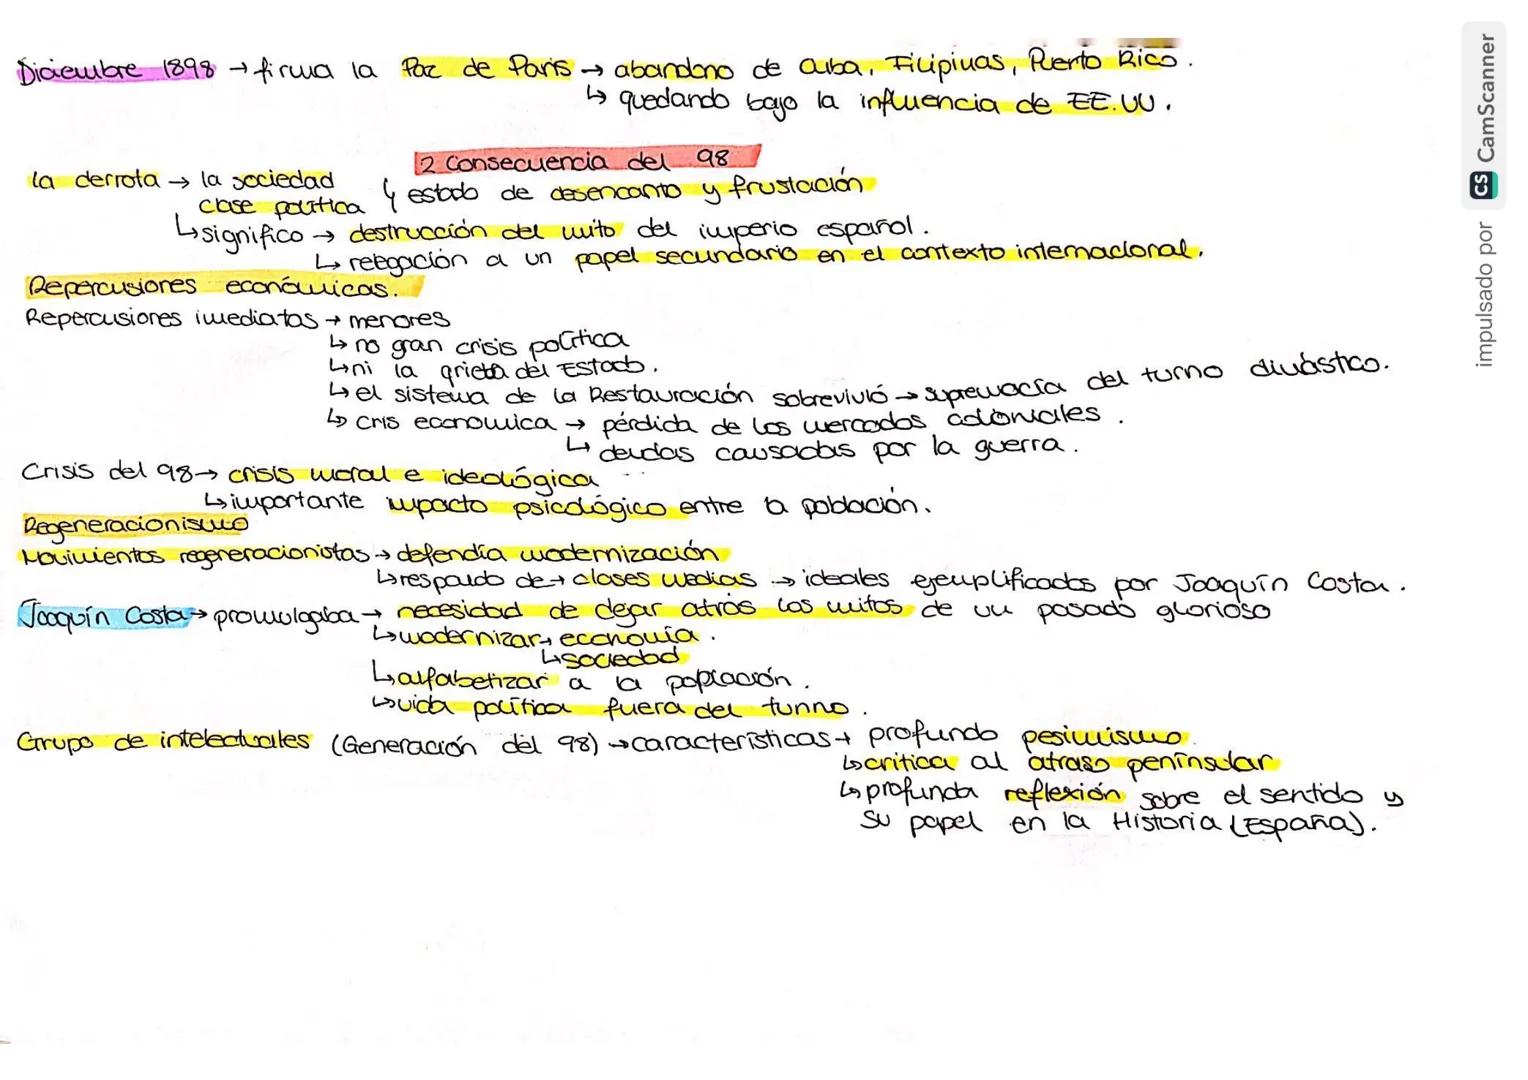 Diciembre 1898 → firma la Paz de Paris → abandono de Cuba, Filipinas, Puerto Rico.
↳ quedando bajo la influencia de EE.UU.
2 Consecuencia del 98
la derrota → la sociedad
clase política
↳ estado de desencanto y frustación
↳ significo → destrucción del mito del imperio español.
↳ relegación a un papel secundario en el contexto internacional.
Repercusiones económicas.
Repercusiones imediatas → menores
↳ no gran crisis política
↳ ni la grieta del Estado.
↳ el sistema de la Restauración sobrevivió → supremacía del turno dinástico.
↳ cris economica → pérdida de los mercados coloniales.
↳ deudas causadas por la guerra.
Crisis del 98 → crisis moral e ideológica
↳ importante impacto psicológico entre la población.
Regeneracionismo
Movimientos regeneracionistas → defendía modernización
↳ respaldo de → clases medias → ideales ejemplificados por Joaquín Costa.
Joaquín Costa → promulgaba → necesidad de dejar atrás los mitos de un pasado glorioso
↳ modernizar → economía.
↳ sociedad
↳ alfabetizar a la poplación.
↳ vida política fuera del tunno.
Grupo de intelectuales (Generación del 98) → características → profundo pesimismo.
↳ critica al atraso penínsular
↳ profunda reflexión sobre el sentido y
su papel en la Historia (España).
impulsado por CS CamScanner